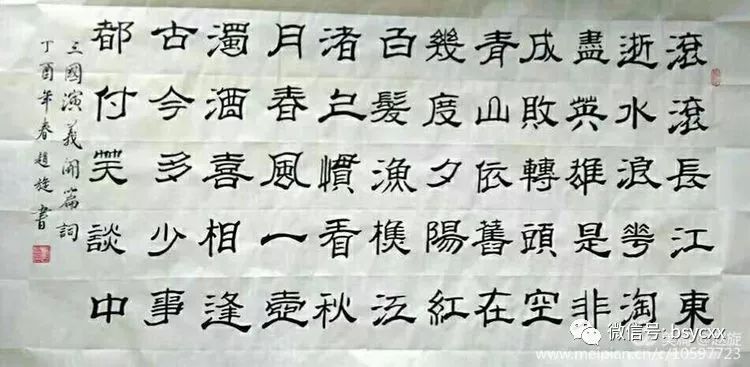 滾滾長江東
逝水浪花淘
盡英雄是非
成敗轉頭空
青山依舊在
幾度夕陽紅
白髮漁樵江
渚上慣看秋
月春風一壺
濁酒喜相逢
古今多少事
都付笑談中
三國演義開篇詞
丁酉年春趙旋書
微信号: bsycxx
www.meipian.cn/c/10597723